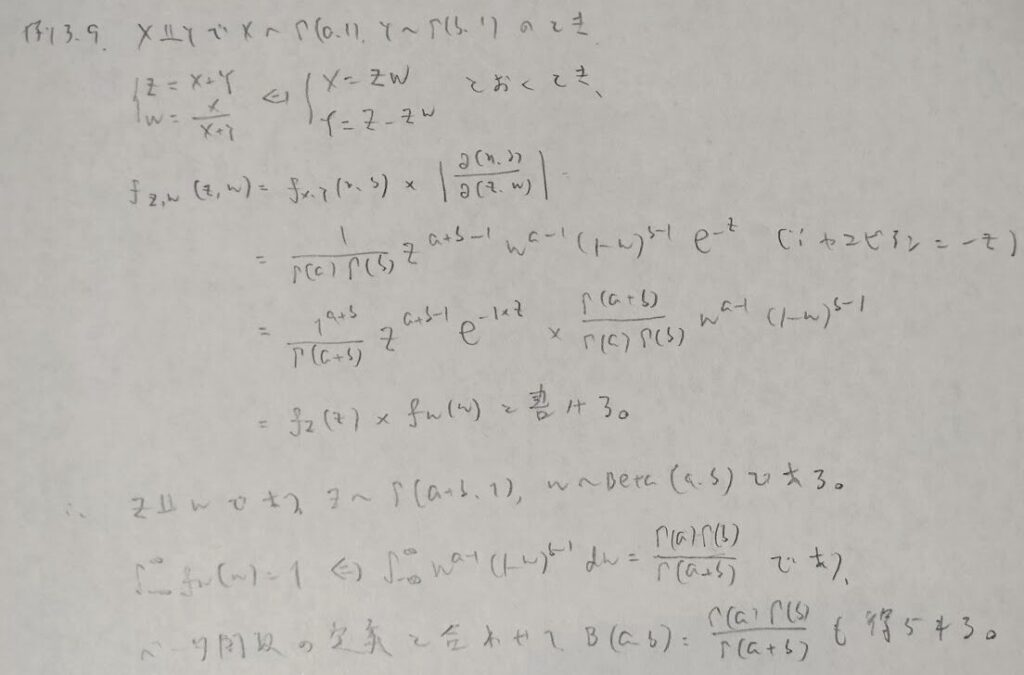 例3.9. X⊥⊥Y で X ~ Γ(a.1), Y ~ Γ(b.1) のとき
{ Z = X+Y, W = X/(X+Y) ⇔ { X = ZW, Y = Z - ZW とおくとき、
f_{Z,W}(z,w) = f_{X,Y}(x,y) × |∂(x,y)/∂(z,w)|
= 1/(Γ(a)Γ(b)) z^{a+b-1} w^{a-1} (1-w)^{b-1} e^{-z} (∵ ヤコビアン = -z)
= 1^{a+b}/Γ(a+b) z^{a+b-1} e^{-1×z} × Γ(a+b)/(Γ(a)Γ(b)) w^{a-1} (1-w)^{b-1}
= f_Z(z) × f_W(w) と書ける。
∴ Z⊥⊥W であり, Z ~ Γ(a+b,1), W ~ Beta(a.b) である。
∫_{-∞}^{∞} f_W(w) = 1 ⇔ ∫_{-∞}^{∞} w^{a-1} (1-w)^{b-1} dw = Γ(a)Γ(b)/Γ(a+b) であり、
ベータ関数の定義と合わせて B(a,b) = Γ(a)Γ(b)/Γ(a+b) も得られる。